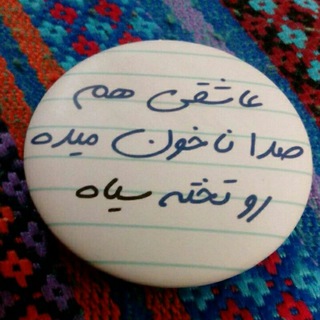 عاشقی هم
صدا ناخون میده
رو تخته سیاه